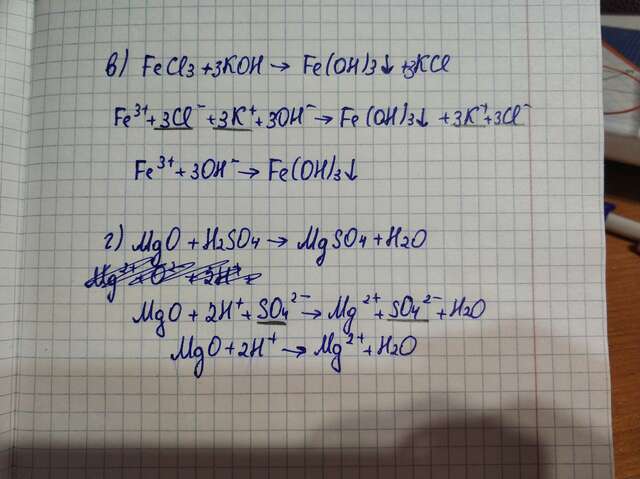 в) FeCl₃ + 3KOH → Fe(OH)₃↓ + 3KCl
Fe³⁺ + 3Cl⁻ + 3K⁺ + 3OH⁻ → Fe(OH)₃↓ + 3K⁺ + 3Cl⁻
Fe³⁺ + 3OH⁻ → Fe(OH)₃↓
г) MgO + H₂SO₄ → MgSO₄ + H₂O
MgO + 2H⁺ + SO₄²⁻ → Mg²⁺ + SO₄²⁻ + H₂O
MgO + 2H⁺ → Mg²⁺ + H₂O